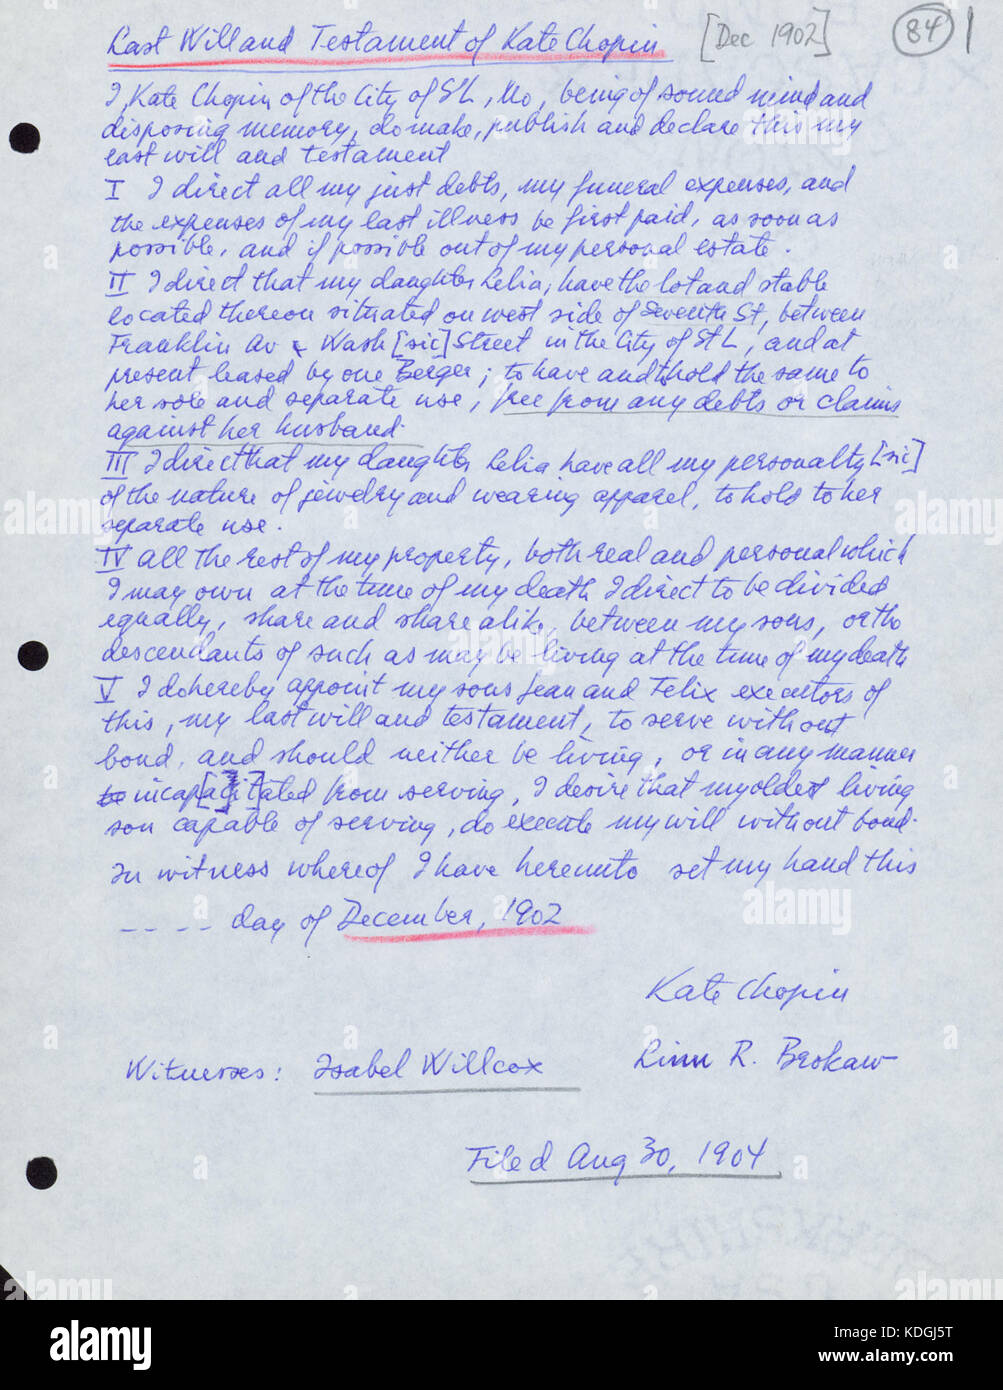 Last Will and Testament of Kate Chopin [Dec 1902] 84
I, Kate Chopin of the City of St L, Mo, being of sound mind and
disposing memory, do make, publish and declare this my
last will and testament
I I direct all my just debts, my funeral expenses, and
the expenses of my last illness be first paid, as soon as
possible, and if possible out of my personal estate.
II I direct that my daughter Lelia, have the lot and stable
located thereon situated on west side of Seventh St, between
Franklin Av & Wash [sic] Street in the City of St L, and at
present leased by one Berger; to have and to hold the same to
her sole and separate use, free from any debts or claims
against her husband.
III I direct that my daughter Lelia have all my personalty [sic]
of the nature of jewelry and wearing apparel, to hold to her
separate use.
IV All the rest of my property, both real and personal which
I may own at the time of my death I direct to be divided
equally, share and share alike, between my sons, or the
descendants of such as may be living at the time of my death
V I do hereby appoint my sons Jean and Felix executors of
this, my last will and testament, to serve without
bond, and should neither be living, or in any manner
be incapa[ci]tated from serving, I desire that my oldest living
son capable of serving, do execute my will without bond.
In witness whereof I have hereunto set my hand this
---- day of December, 1902
Kate Chopin
Witnesses: Isabel Willcox Linn R. Brokaw
Filed Aug 30, 1904
alamy
Image ID: KDGJ5T
www.alamy.com